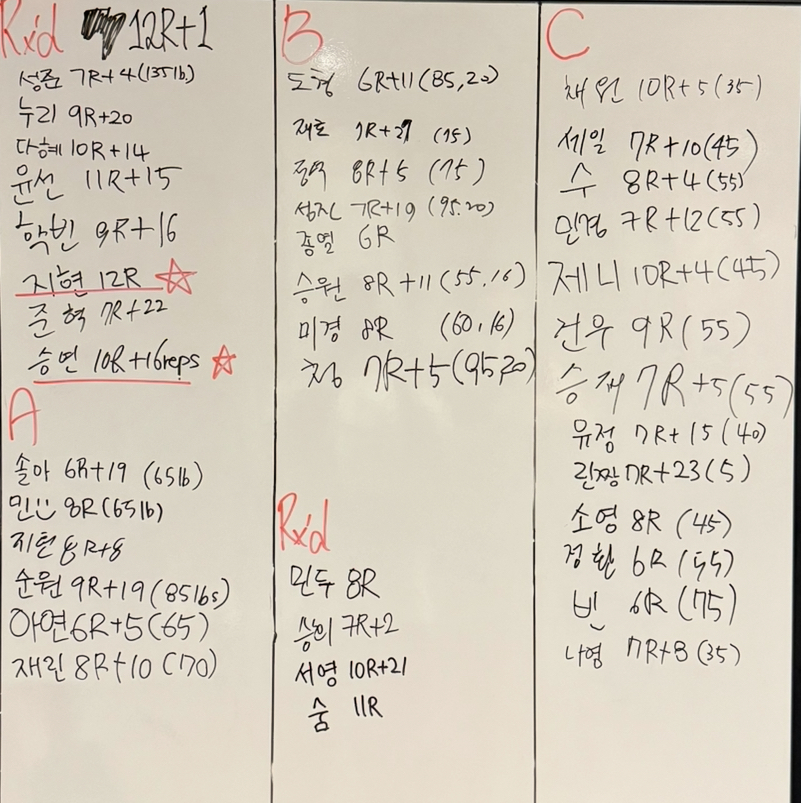 Rx'd 12R+1
성준 7R+4(135lb)
누리 9R+20
다혜 10R+14
윤선 11R+15
학빈 9R+16
지현 12R
준혁 7R+22
승연 10R+16reps
A
솔아 6R+19 (65lb)
민 8R(65lb)
지현 8R+8
순원 9R+19(85lbs)
아연 6R+5(65)
재린 8R+10(70)
B
도형 6R+11(85,20)
재호 7R+27 (75)
8R+5 (75)
성진 7R+19 (95.20)
종열 6R
승원 8R+11(55,16)
미경 8R (60,16)
청 7R+5(95,20)
Rx'd
민두 8R
승희 7R+2
서영 10R+21
숨 11R
C
채원 10R+5(35)
세일 7R+10(45)
수 8R+4(55)
민경 7R+12(55)
제니 10R+4(45)
건우 9R(55)
승재 7R+5(55)
유정 7R+15(40)
린짱 7R+23(5)
소영 8R (45)
정환 6R (55)
빈 6R(75)
나영 7R+8(35)